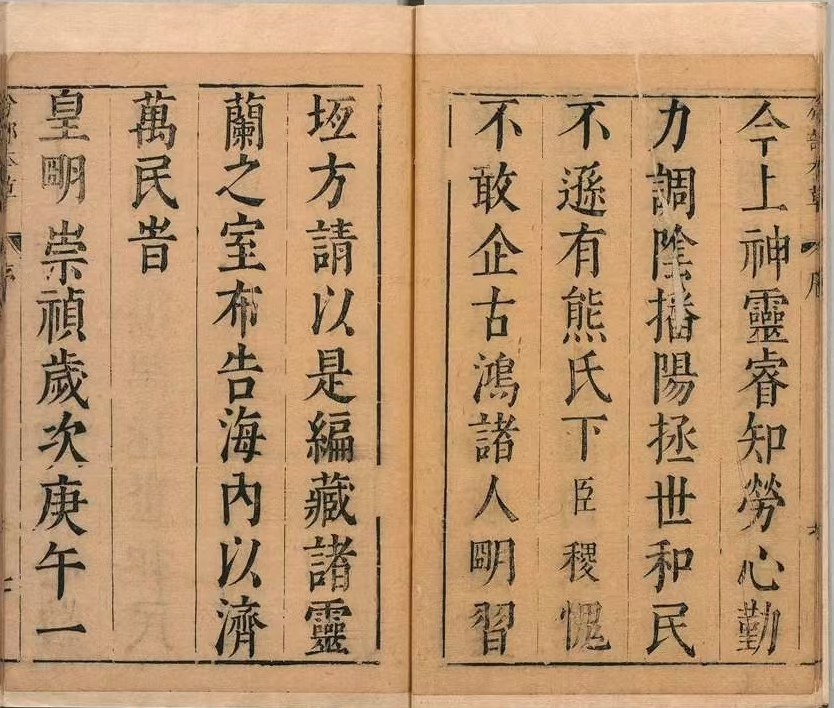 今上神靈睿知勞心勤
力調陰播陽拯世和民
不遜有熊氏下臣稷愧
不敢企古鴻諸人明習
𡊮方請以是編藏諸靈
蘭之室布告海內以濟
萬民旹
皇明崇禎歲次庚午一